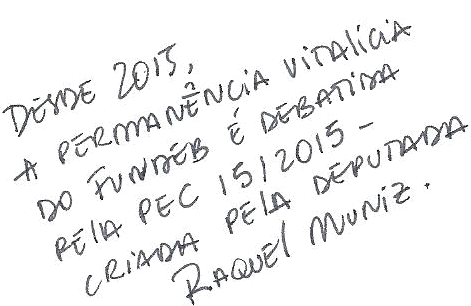 DESDE 2015,
A PERMANÊNCIA VITALÍCIA
DO FUNDEB É DEBATIDA
PELA PEC 15/2015 -
CRIADA PELA DEPUTADA
RAQUEL MUNIZ.